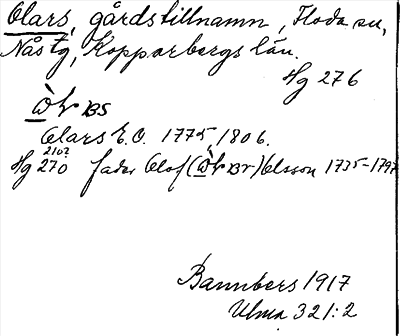 Olars, gårdstillnamn, Floda sn,
Nås tg, Kopparbergs län.
Hg 276
Olars E.O. 1775, 1806.
2102
Hg 270 fader Olof () Olsson 1735-1797
Bannbers 1917
Ulma 321:2